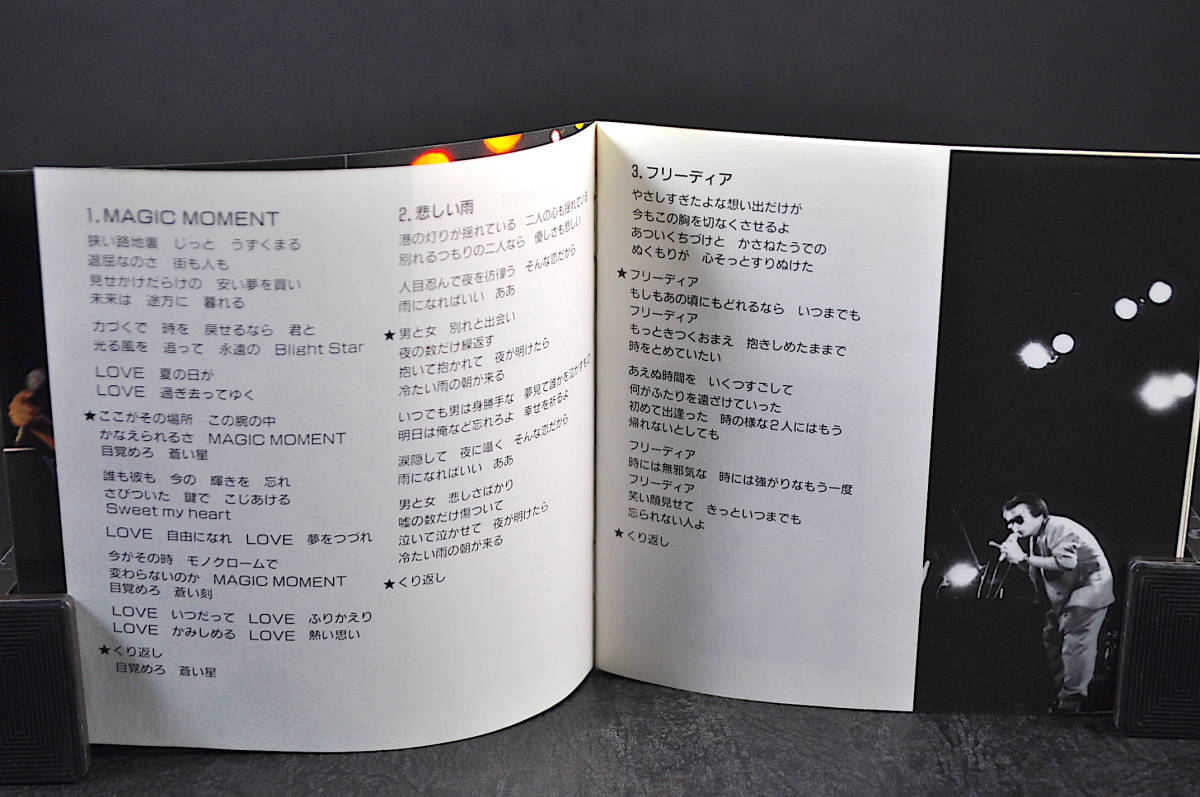 1. MAGIC MOMENT
狭い路地裏　じっと　うずくまる
退屈なのさ　街も人も
見せかけだらけの　安い夢を買い
未来は　途方に　暮れる
力づくで　時を　戻せるなら　君と
光る風を　追って　永遠の　Blight Star
LOVE　夏の日が
LOVE　過ぎ去ってゆく
★ここがその場所　この腕の中
かなえられるさ　MAGIC MOMENT
目覚めろ　蒼い星
誰も彼も　今の　輝きを　忘れ
さびついた　鍵で　こじあける
Sweet my heart
LOVE　自由になれ　LOVE　夢をつづれ
今がその時　モノクロームで
変わらないのか　MAGIC MOMENT
目覚めろ　蒼い刻
LOVE　いつだって　LOVE　ふりかえり
LOVE　かみしめる　LOVE　熱い思い
★くり返し
目覚めろ　蒼い星
2. 悲しい雨
港の灯りが揺れている　二人の心も揺れている
別れるつもりの二人なら　優しさも悲しい
人目忍んで夜を彷徨う　そんな恋だから
雨になればいい　ああ
★男と女　別れと出会い
夜の数だけ繰返す
抱いて抱かれて　夜が明けたら
冷たい雨の朝が来る
いつでも男は身勝手な　夢見て誰かを泣かすもの
明日は俺など忘れろよ　幸せを祈るよ
涙隠して　夜に囁く　そんな恋だから
雨になればいい　ああ
男と女　悲しさばかり
嘘の数だけ傷ついて
泣いて泣かせて　夜が明けたら
冷たい雨の朝が来る
★くり返し
3. フリーディア
やさしすぎたよな想い出だけが
今もこの胸を切なくさせるよ
あついくちづけと　かさねたうでの
ぬくもりが　心そっとすりぬけた
★フリーディア
もしもあの頃にもどれるなら　いつまでも
フリーディア
もっときつくおまえ　抱きしめたままで
時をとめていたい
あえぬ時間を　いくつすごして
何がふたりを遠ざけていった
初めて出逢った　時の様な2人にはもう
帰れないとしても
フリーディア
時には無邪気な　時には強がりなもう一度
フリーディア
笑い顔見せて　きっといつまでも
忘られない人よ
★くり返し